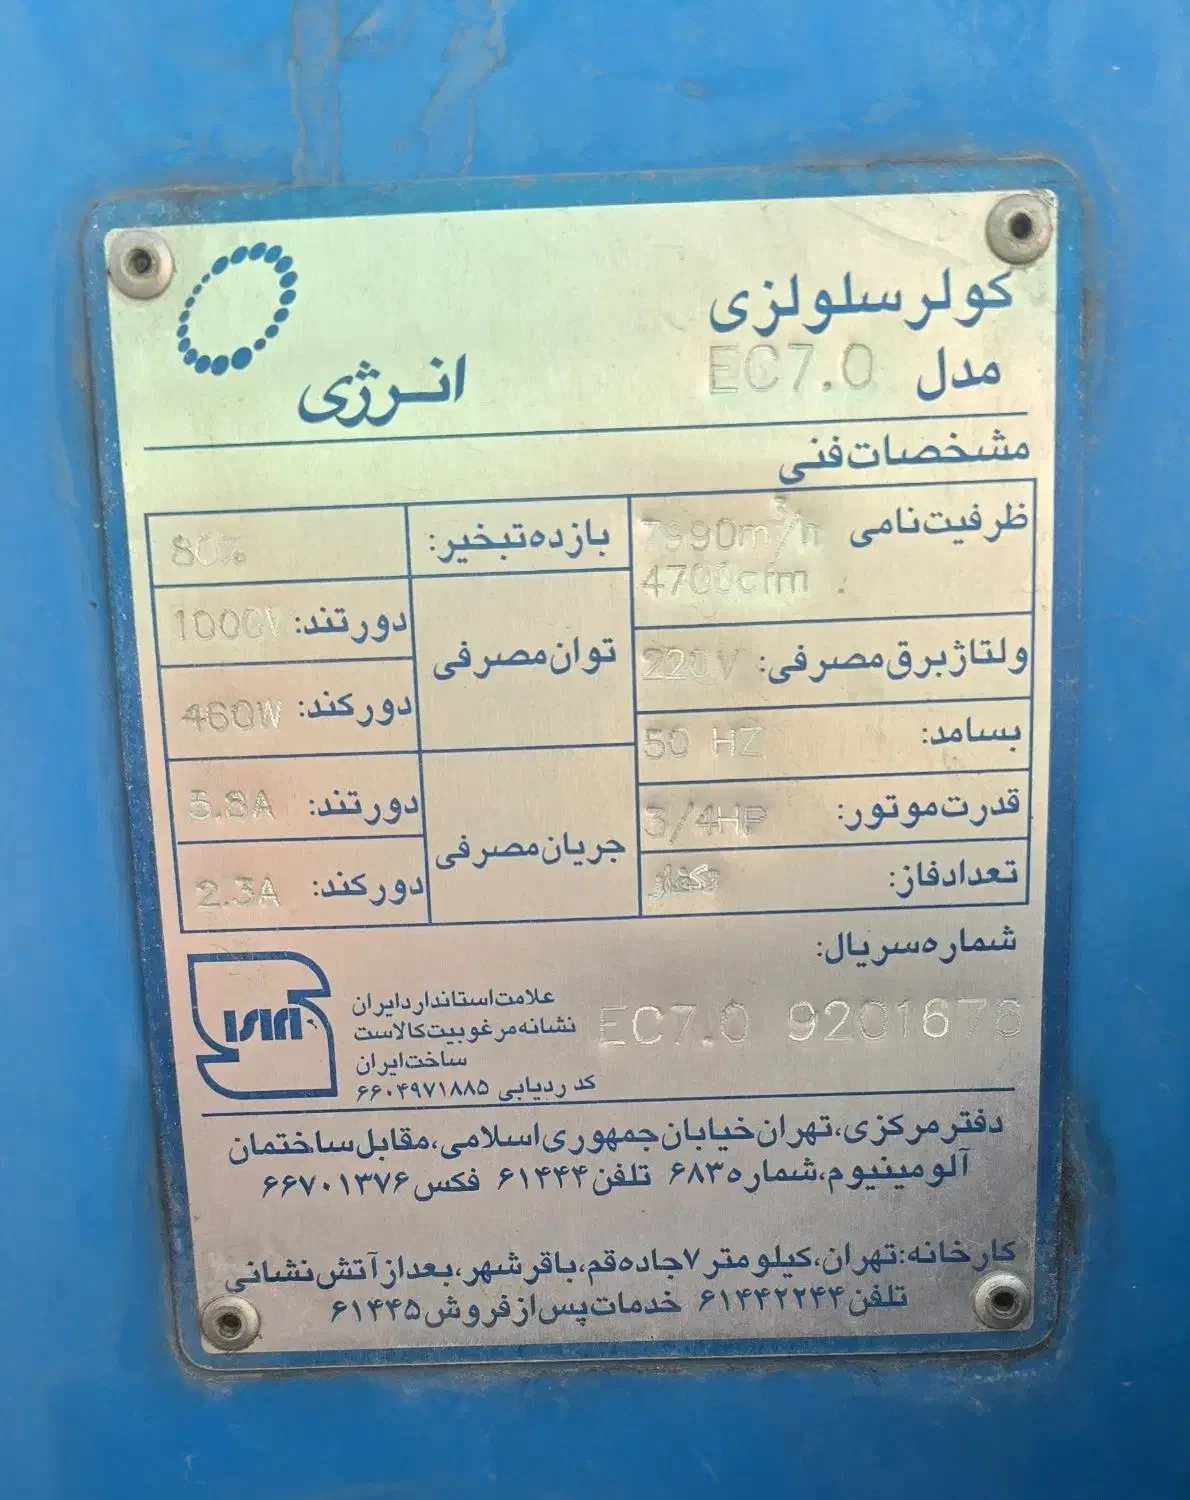 کولر سلولزی
مدل EC7.0
انرژی
مشخصات فنی
ظرفیت نامی 7990m³/h
4700cfm
ولتاژ برق مصرفی: 220V
بسامد: 50 HZ
قدرت موتور: 3/4HP
تعداد فاز: تکفاز
بازده تبخیر: 80%
توان مصرفی
دور تند: 1000W
دور کند: 460W
جریان مصرفی
دور تند: 5.8A
دور کند: 2.3A
شماره سریال:
EC7.0 9201676
ISIRI
علامت استاندارد ایران
نشانه مرغوبیت کالاست
ساخت ایران
کد ردیابی ۶۶۰۴۹۷۱۸۸۵
دفتر مرکزی، تهران خیابان جمهوری اسلامی، مقابل ساختمان
آلومینیوم، شماره ۶۸۳ تلفن ۶۱۴۴۴ فکس ۶۶۷۰۱۳۷۶
کارخانه: تهران، کیلومتر ۷ جاده قم، باقرشهر، بعد از آتش نشانی
تلفن ۶۱۴۴۲۲۴۴ خدمات پس از فروش ۶۱۴۴۵